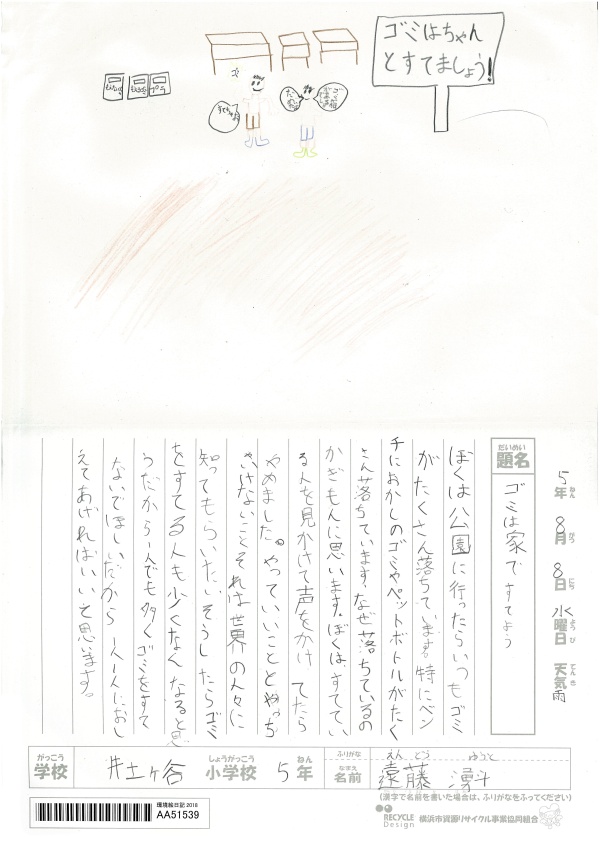 ゴミはちゃん
とすてましょう!
もえない
もえる
プラ
5年 8月 8日 水曜日 天気 雨
ねん がつ にち ようび てんき
だいめい
題名
ゴミは家ですてよう
ぼくは公園に行ったらいつもゴミ
がたくさん落ちています。特にベン
チにおかしのゴミやペットボトルがたく
さん落ちています。なぜ落ちているの
かぎもんに思います。ぼくはすててい
る人を見かけて声をかけてたら
やめました。やっていいこととやっち
ゃいけないことそれは世界の人々に
知ってもらいたいそうしたらゴミ
をすてる人も少くなんなると思
うだから一人でも多くゴミをすて
ないでほしいだから一人一人におし
えてあげればいいと思います。
がっこう
学校
井土ヶ谷
しょうがっこう
小学校
5
ねん
年
ふりがな
えんどう ゆうと
なまえ
名前
遠藤 湧斗
(漢字で名前を書いた場合は、ふりがなをふってください)
環境絵日記 2018
AA51539
RECYCLE Design
横浜市資源リサイクル事業協同組合